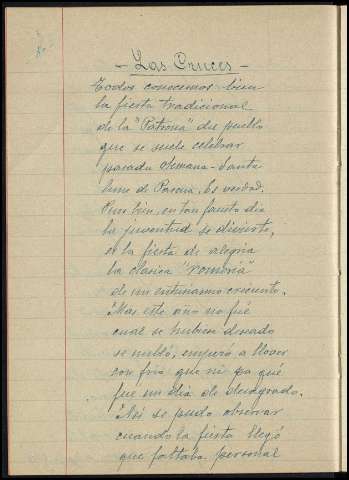 - Las Cruces -
Todos conocemos bien
la fiesta tradicional
de la "Patrona" del pueblo
que se suele celebrar
pasada Semana-Santa
lunes de Pascua. Es verdad.
Pues bien, en tan fausto dia
la juventud se divierte,
es la fiesta de alegria
la clasica "romeria"
de un entusiasmo creciente.
Mas este año no fué
cual se hubiera deseado
se nubló, empezó a llover
con frio que ni pa qué
fue un dia de desagrado.
Asi se pudo observar
cuando la fiesta llegó
que faltaba personal